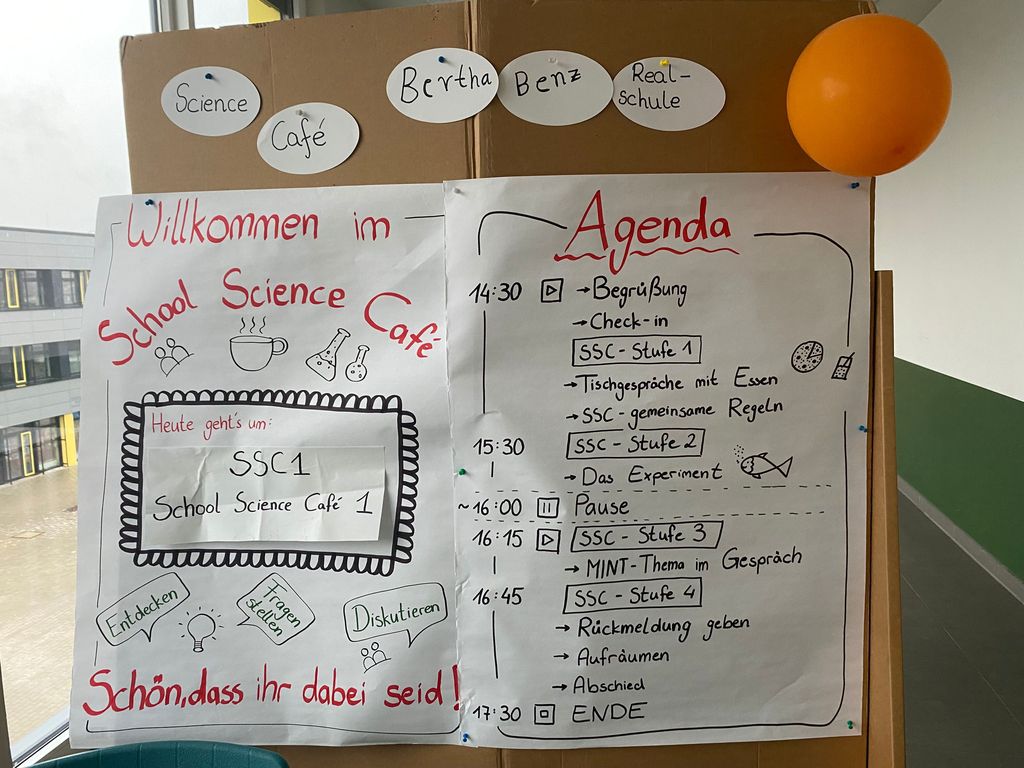 Science
Café
Bertha
Benz
Real-
schule
Willkommen im
School Science Café
Heute geht's um:
SSC1
School Science Café 1
Entdecken
Fragen
stellen
Diskutieren
Schön, dass ihr dabei seid!
Agenda
14:30 → Begrüßung
→ Check-in
SSC - Stufe 1
→ Tischgespräche mit Essen
→ SSC - gemeinsame Regeln
15:30 SSC - Stufe 2
→ Das Experiment
~16:00 Pause
16:15 SSC - Stufe 3
→ MINT-Thema im Gespräch
16:45 SSC - Stufe 4
→ Rückmeldung geben
→ Aufräumen
→ Abschied
17:30 ENDE